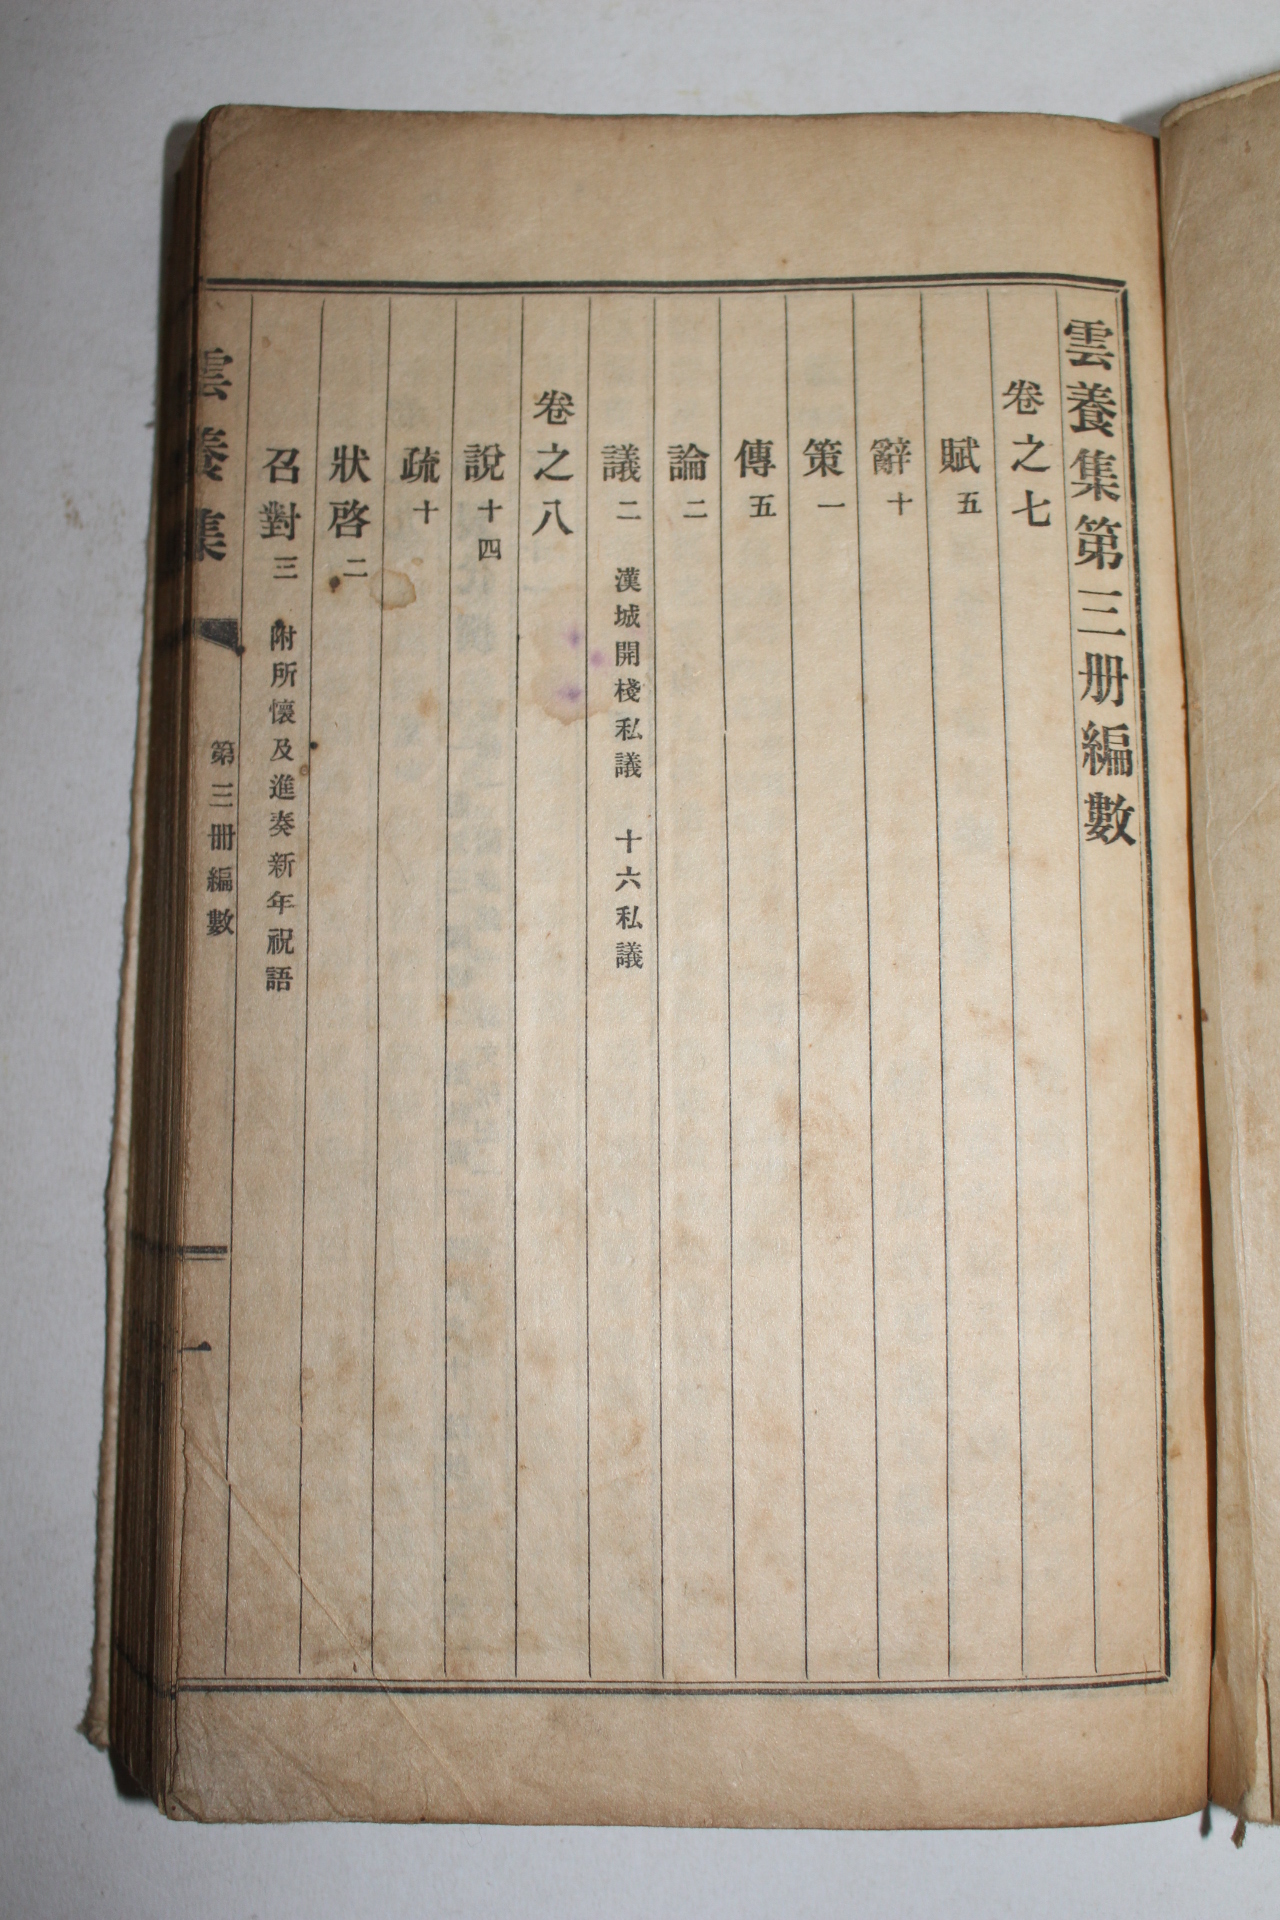 雲養集第三册編數
卷之七
賦五
辭十
策一
傳五
論二
議二 漢城開棧私議 十六私議
卷之八
說十四
疏十
狀啓二
召對三 附所懷及進奏新年祝語
雲養集
第三冊編數
一